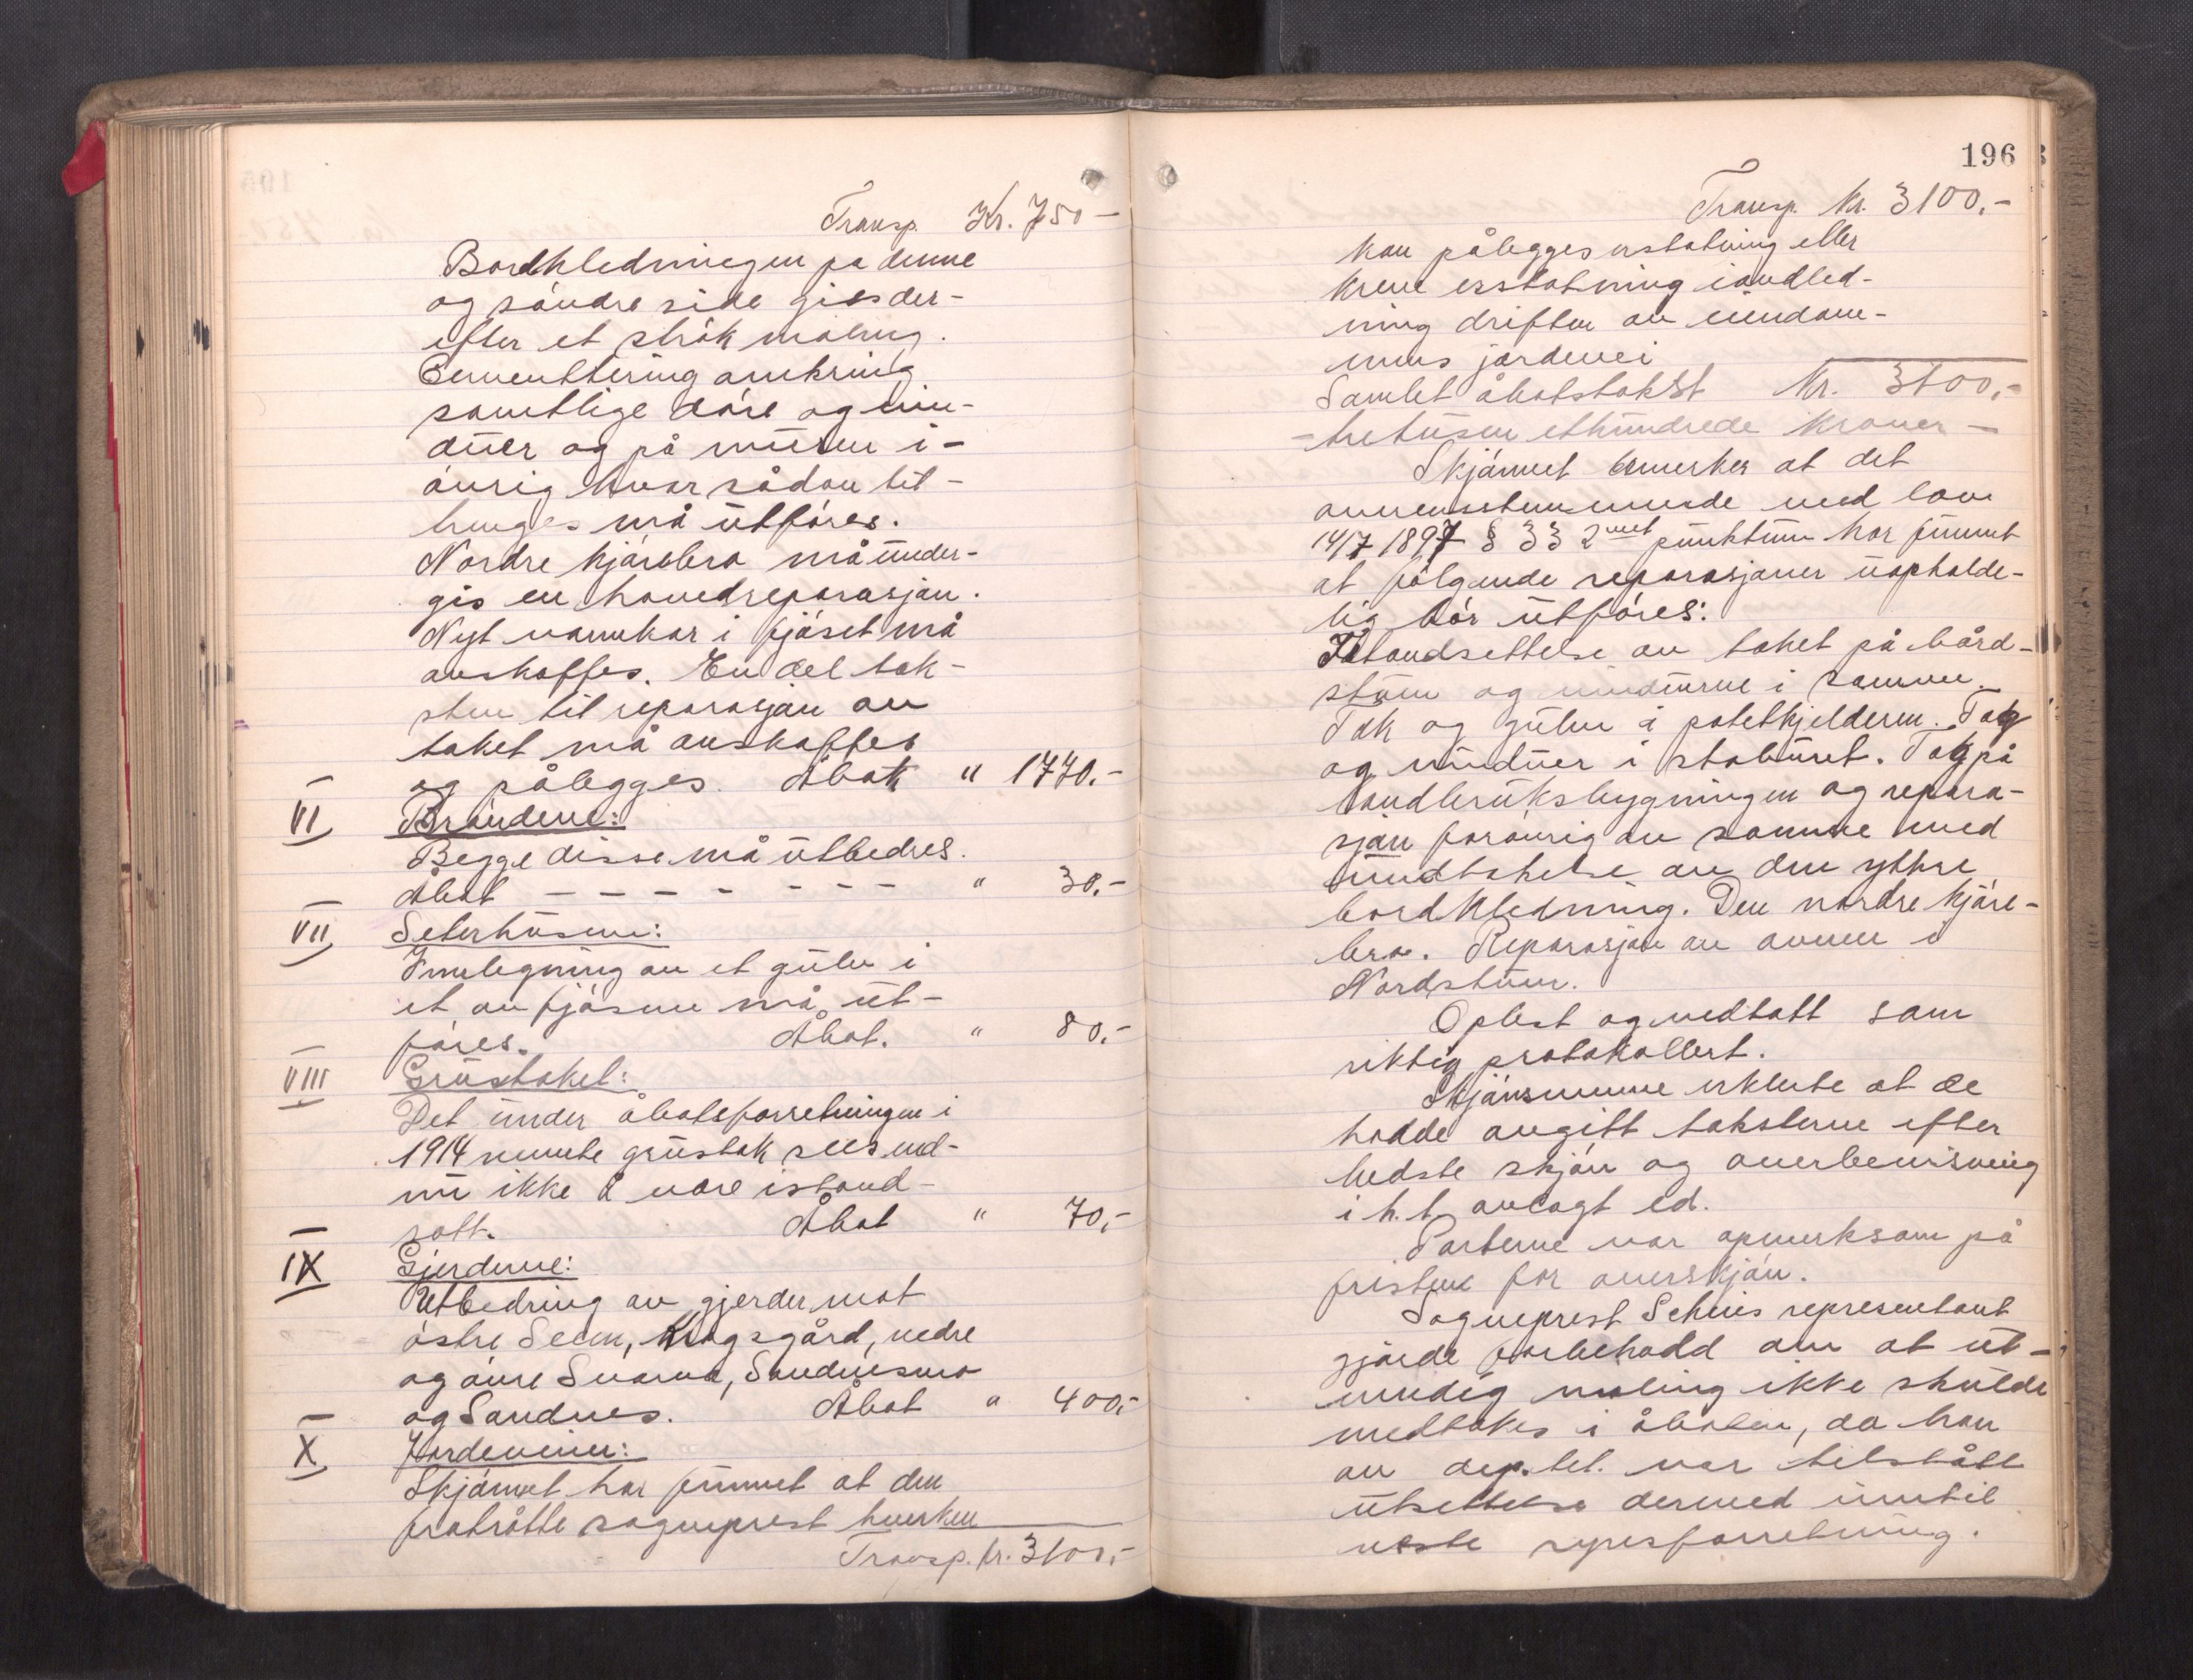 Transp. Kr. 750 –
Bordkledningen på denne
og söndre side gies der-
efter et strök maling.
Cementtering omkring
samtlige döre og vin-
duer og på muren i-
övrig hvor sådan til-
trenges må utföres.
Nordre kjörebro må under-
gis en hovedreparasjon.
Nyt vannkar i fjöset må
anskaffes. En del tak-
sten til reparasjon av
taket må anskaffes
og pålegges. Åbot " 1770.-
VI Bröndene:
Begge disse må utbedres.
Åbot – – – – – – – – " 30.-
VII Seterhusene:
Innlegning av et gulv i
et av fjösene må ut-
föres. Åbot. " 80.-
VIII Grustaket:
Det under åbotsforretningen i
1914 nevnte grustak sees end-
nu ikke å være istand-
satt. Åbot " 70,-
IX Gjerdene:
Utbedring av gjerder mot
östre Seem, Krogsgård, nedre
og övre Svarva, Sandnesmo
og Sandnes. Åbot " 400,-
X Jordeveien:
Skjönnet har funnet at den
fratrådte sogneprest hverken
Transp. kr. 3100,-
196
Transp. kr. 3100,-
kan pålegges erstatning eller
kreve erstatning i andled-
ning driften av eiendom-
mens jordevei
Samlet åbotstakst Kr. 3100,-
– tretusen ethundrede kroner –
Skjönnet bemerker at det
overensstemmende med lov
14/7 1897 § 33 2net punktum har funnet
at fölgende reparasjoner uophol­de-
lig bör utföres:
Istandsettelse av taket på bård-
stuen og vinduerne i samme.
Tak og gulv i potetkjelderen. Tak
og vinduer i staburet. Tak på
landbruksbygningen og repara-
sjon forövrig av samme med
undtakelse av den ytre
bordkledning. Den nordre kjöre-
bro. Reparasjon av ovnen i
Nordstuen.
Oplest og vedtatt som
riktig protokollert.
Skjönsmennene erklerte at de
hadde avgitt taksterne efter
bedste skjön og overbevisning
i h. t. avlagt ed.
Parterne var opmerksom på
fristene for overskjön.
Sogneprest Schies representant
gjorde forbehold om at ut-
vendig maling ikke skulde
medtakes i åboten, da han
av dep.tet. var tilstått
utsettelse dermed inntil
neste synsforretning.